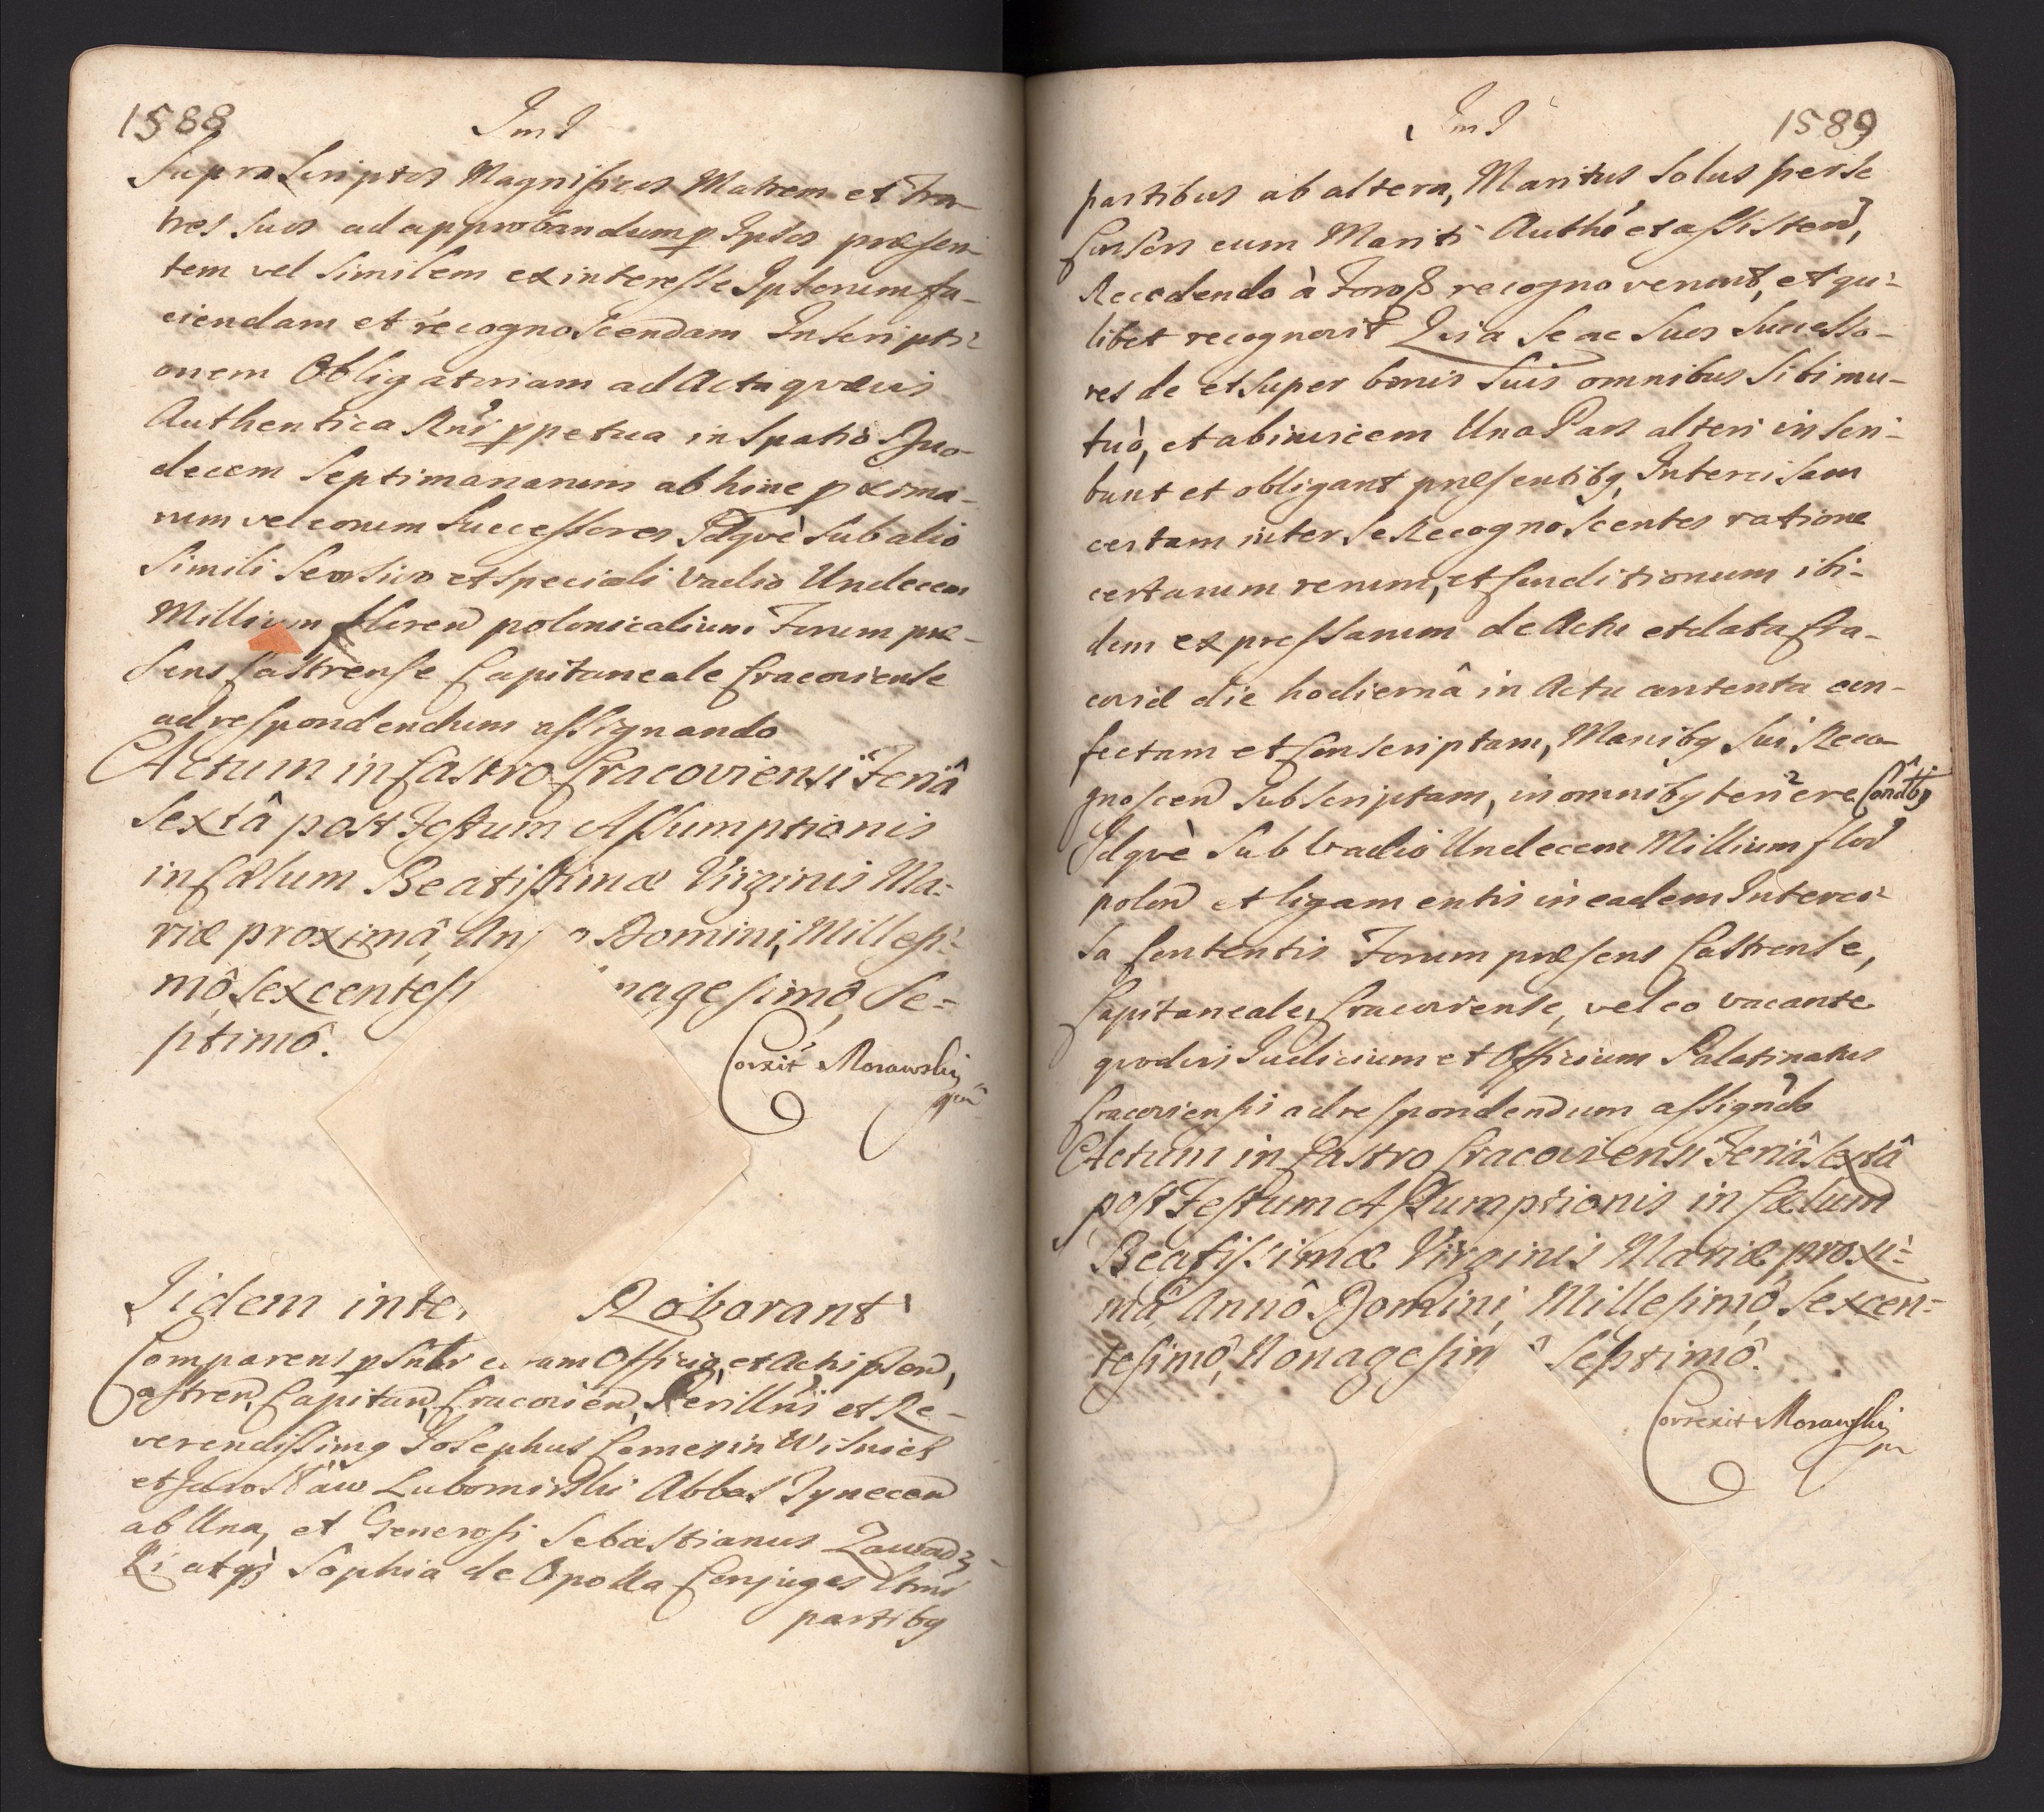 1588
ImJ
Suprascriptos Magnificos Matrem et Fra-
tres suos ad approbandum p Ipsos præsen-
tem vel similem ex interesse Ipsorum fa-
ciendam et recognoscendam Inscripti-
onem Obligatoriam ad Acta quævis
Authentica Rni ppetua in spatio Duo-
decem Septimanarum ab hinc pxima-
rum vel eorum Successores Idqvè sub alio
simili seorsivo et speciali Vadio Undecem
Millium floren polonicalium Forum præ-
sens Castrense Capitaneale Cracoviense
ad respondendum assignando
Actum in Castro Cracoviensi Feriâ
Sextâ post Festum Assumptionis
in Cælum Beatissimæ Virginis Ma-
riæ proximâ, An o Domini, Millesi-
mô Sexcentesi nagesimô Se-
ptimô.
Corxit Morawski
Iidem inte Roborant
Comparens psnbr c ram Officio, et Actis psen,
Castren, Capitan, Cracovien, Perillris et Re-
verendissimg Josephus Comes in Wisnicz
et Jarosław Lubomirski Abbas Tynecen
ab Una, et Generosi Sebastianus Zawadz-
ki atqz Sophia de Opolla Conjuges
partibg
ImJ
1589
partibus ab altera, Maritus solus per se
Consors cum Mariti Authé et assisten,
Recedendo à Foroß recognoverunt, et qui-
libet recognovit Quia se ac suos Successo-
res de et super bonis suis omnibus sibi mu-
tuò, et ab invicem Una Pars alteri inscri-
bunt et obligant præsentibg Intercisam
certam inter se Recognoscentes ratione
certarum rerum, et Conditionum ibi-
dem expressarum de Actu et data Cra-
coviæ die hodiernâ in Actu contenta con-
fectam et Conscriptam, Manibg sui Reco-
gnoscen subscriptam, in omnibg tenere Condbg
Idqvè sub Vadio Undecem Millium flor
polon et ligamentis in eadem Interci-
sa Contentis Forum præsens Castrense,
Capitaneale, Cracoviense, vel eo vacante
qvodvis Judicium et Officium Palatinatus
Cracoviensis ad respondendum assigndo
Actum in Castro Cracoviensi Feriâ Sextâ
post Festum Assumptionis in Cælum
Beatissimæ Virginis Mariæ proxi-
mâ, Annô Domini, Millesimô, Sexcen-
tesimô, Nonagesim ô Septimô.
Correxit Morawski